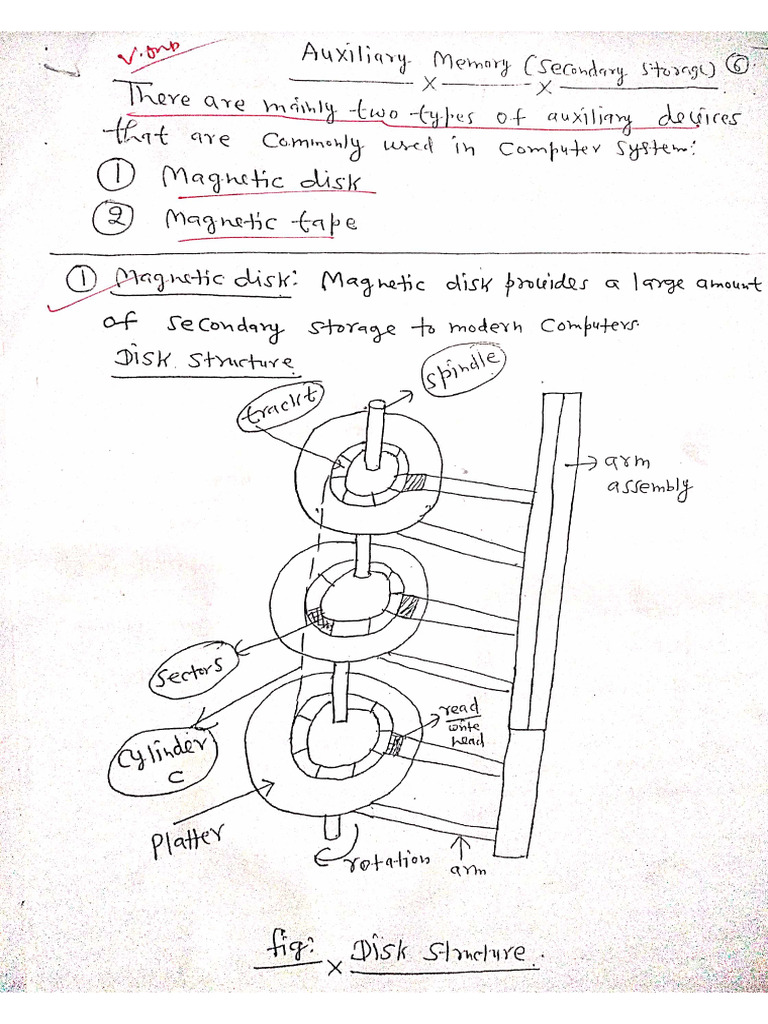 V. Imp
Auxiliary Memory (Secondary Storage) ⑥
There are mainly two types of auxiliary devices
that are commonly used in computer system:
① Magnetic disk
② Magnetic tape
① Magnetic disk: Magnetic disk provides a large amount
of secondary storage to modern computers.
Disk Structure
spindle
track t
arm
assembly
sectors
read
write
head
cylinder
c
platter
rotation
arm
fig: Disk Structure.